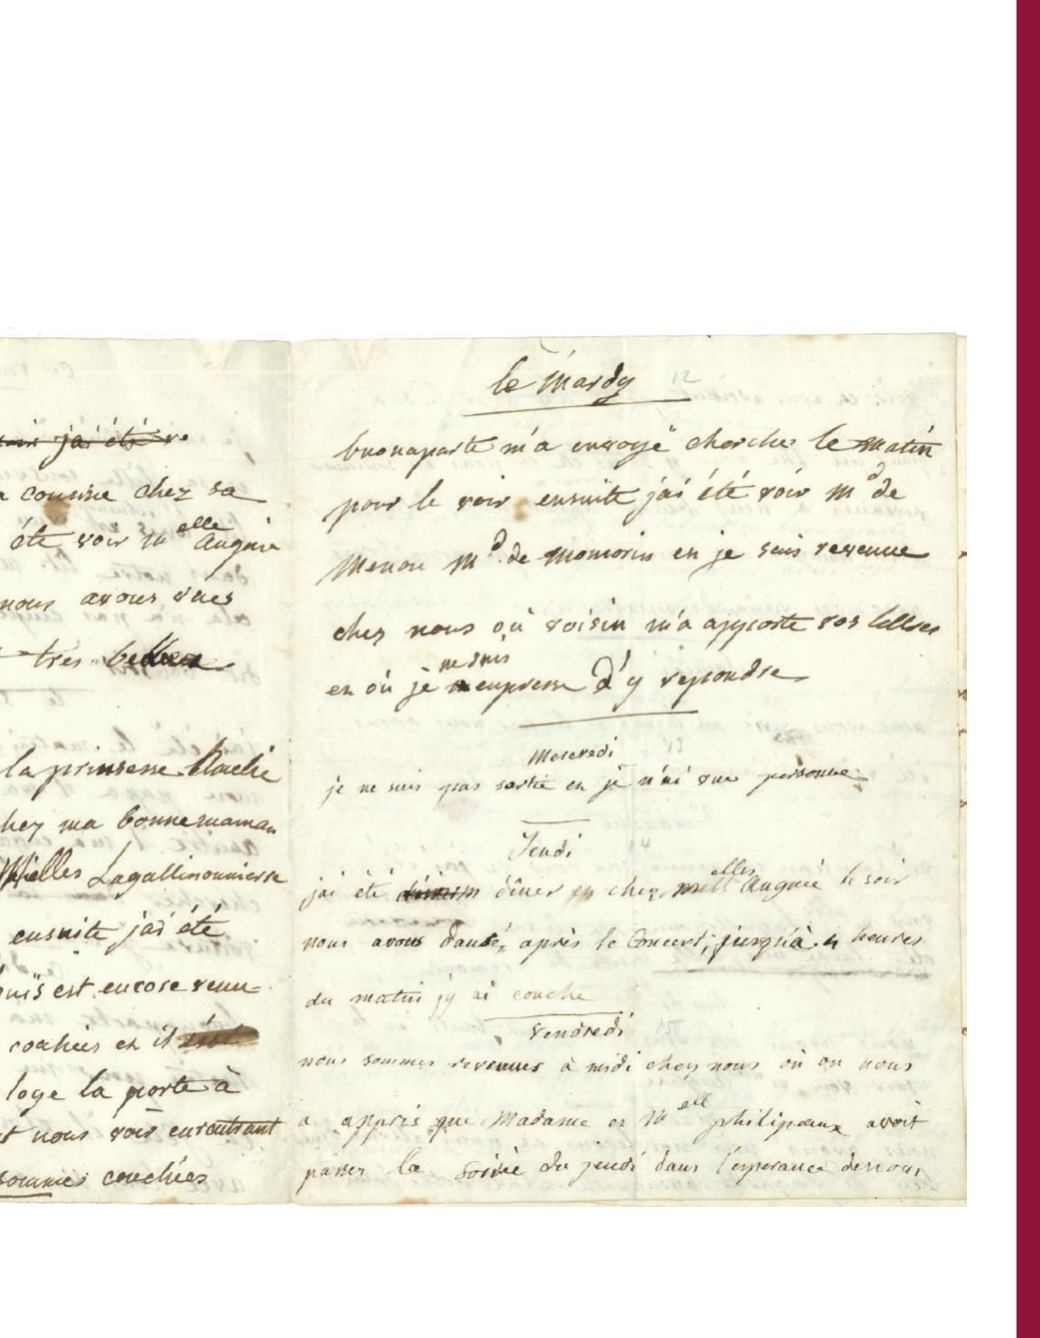 jai été v.
cousine chez sa
été voir M elle Auguié
nous avons vues
très belles
la prinsesse
chez ma bonne maman
Melles Lagallisonnierre
ensuite j'ai été
est encore venu
cochées et il
loge la porte à
nous voir en rentrant
sommes couchées
le Mardy 12
buonaparte m'a envoyé cherche le matin
pour le voir ensuitte j'ai été voir Md de
Menou Md. de Momorin et je suis revenue
chez nous où voisin m'a apporte vos lettres
et où je me suis empresse d'y repondre
Mercredi 13
je ne suis pas sortie et je n'ai vue personne
Jeudi 14
jai été dîner chez melles Auguié le soir
nous avons dansé, après le Concert, jusqu'à 4 heures
du matin j'y ai couche
Vendredi
nous sommes revenues à midi chez nous où on nous
a appris que Madame et M ell philipeaux avoit
passer la soirée du jeudi dans l'esperance de nous